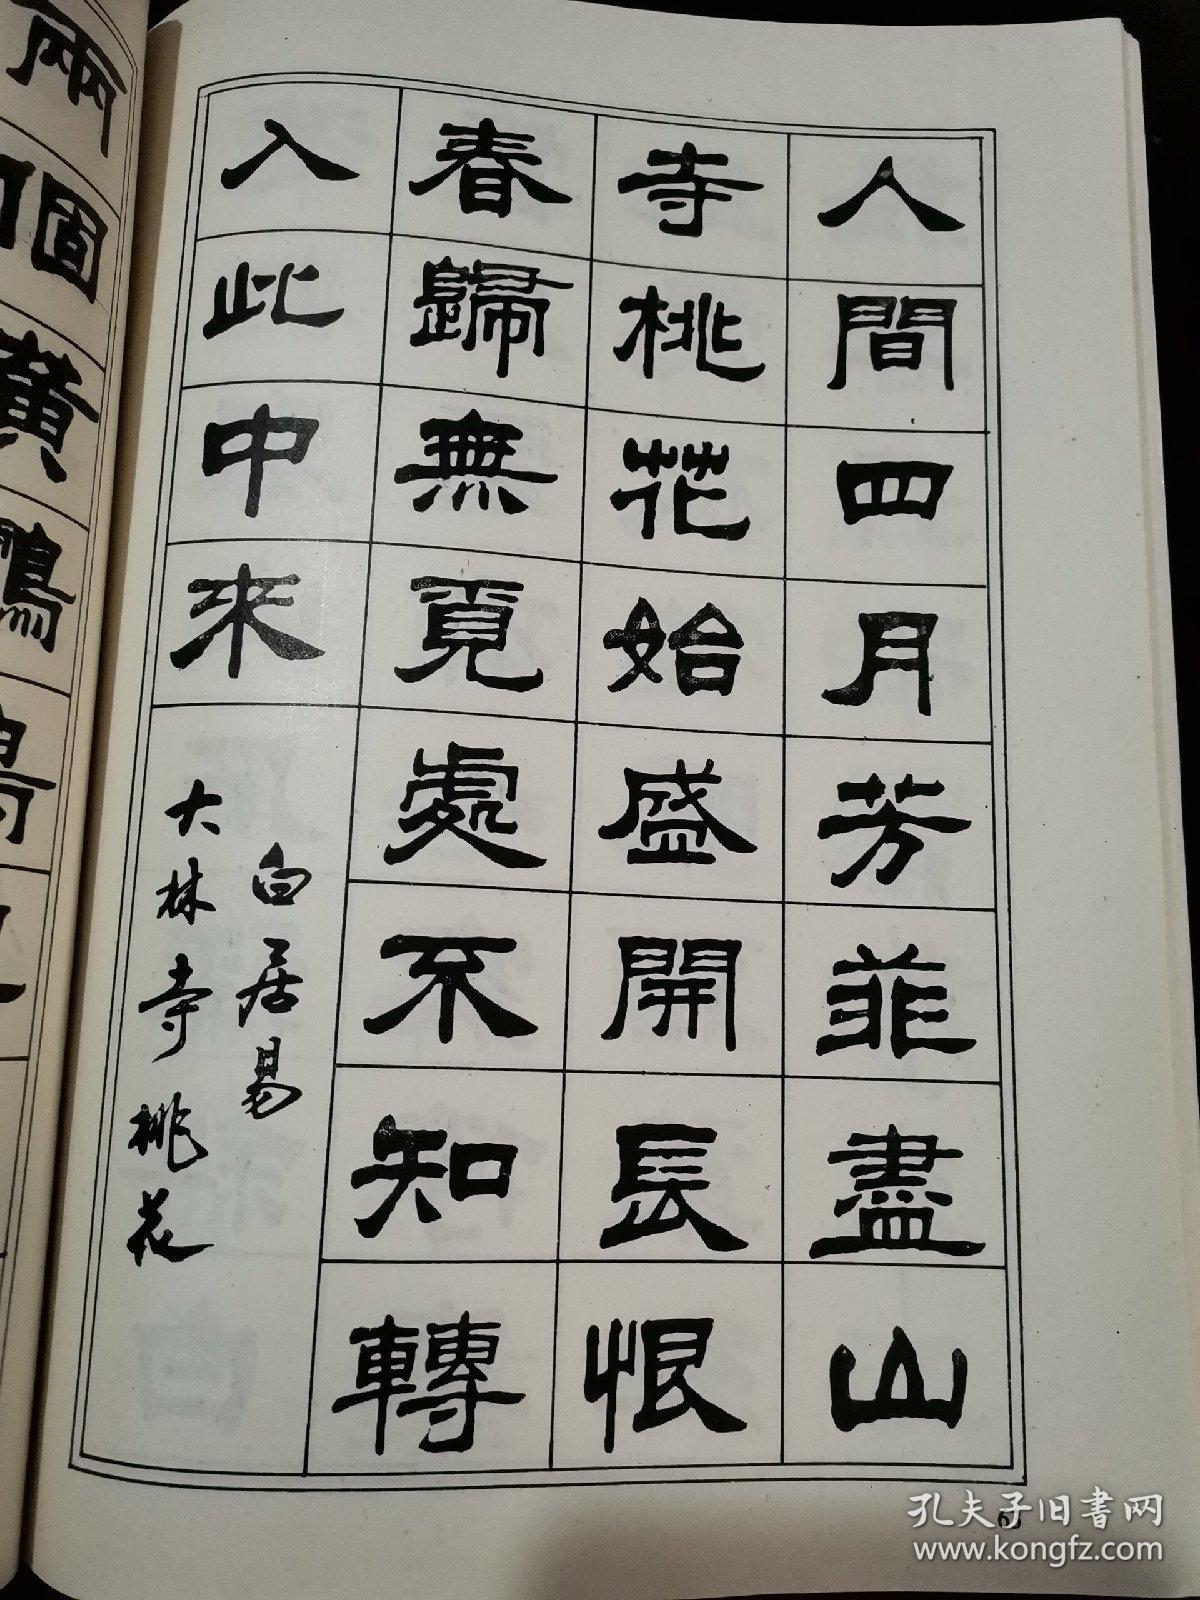 人間四月芳菲盡山
寺桃花始盛開長恨
春歸無覓處不知轉
入此中來
白居易
大林寺桃花
兩個黃鸝鳴
孔夫子旧書网
www.kongfz.com